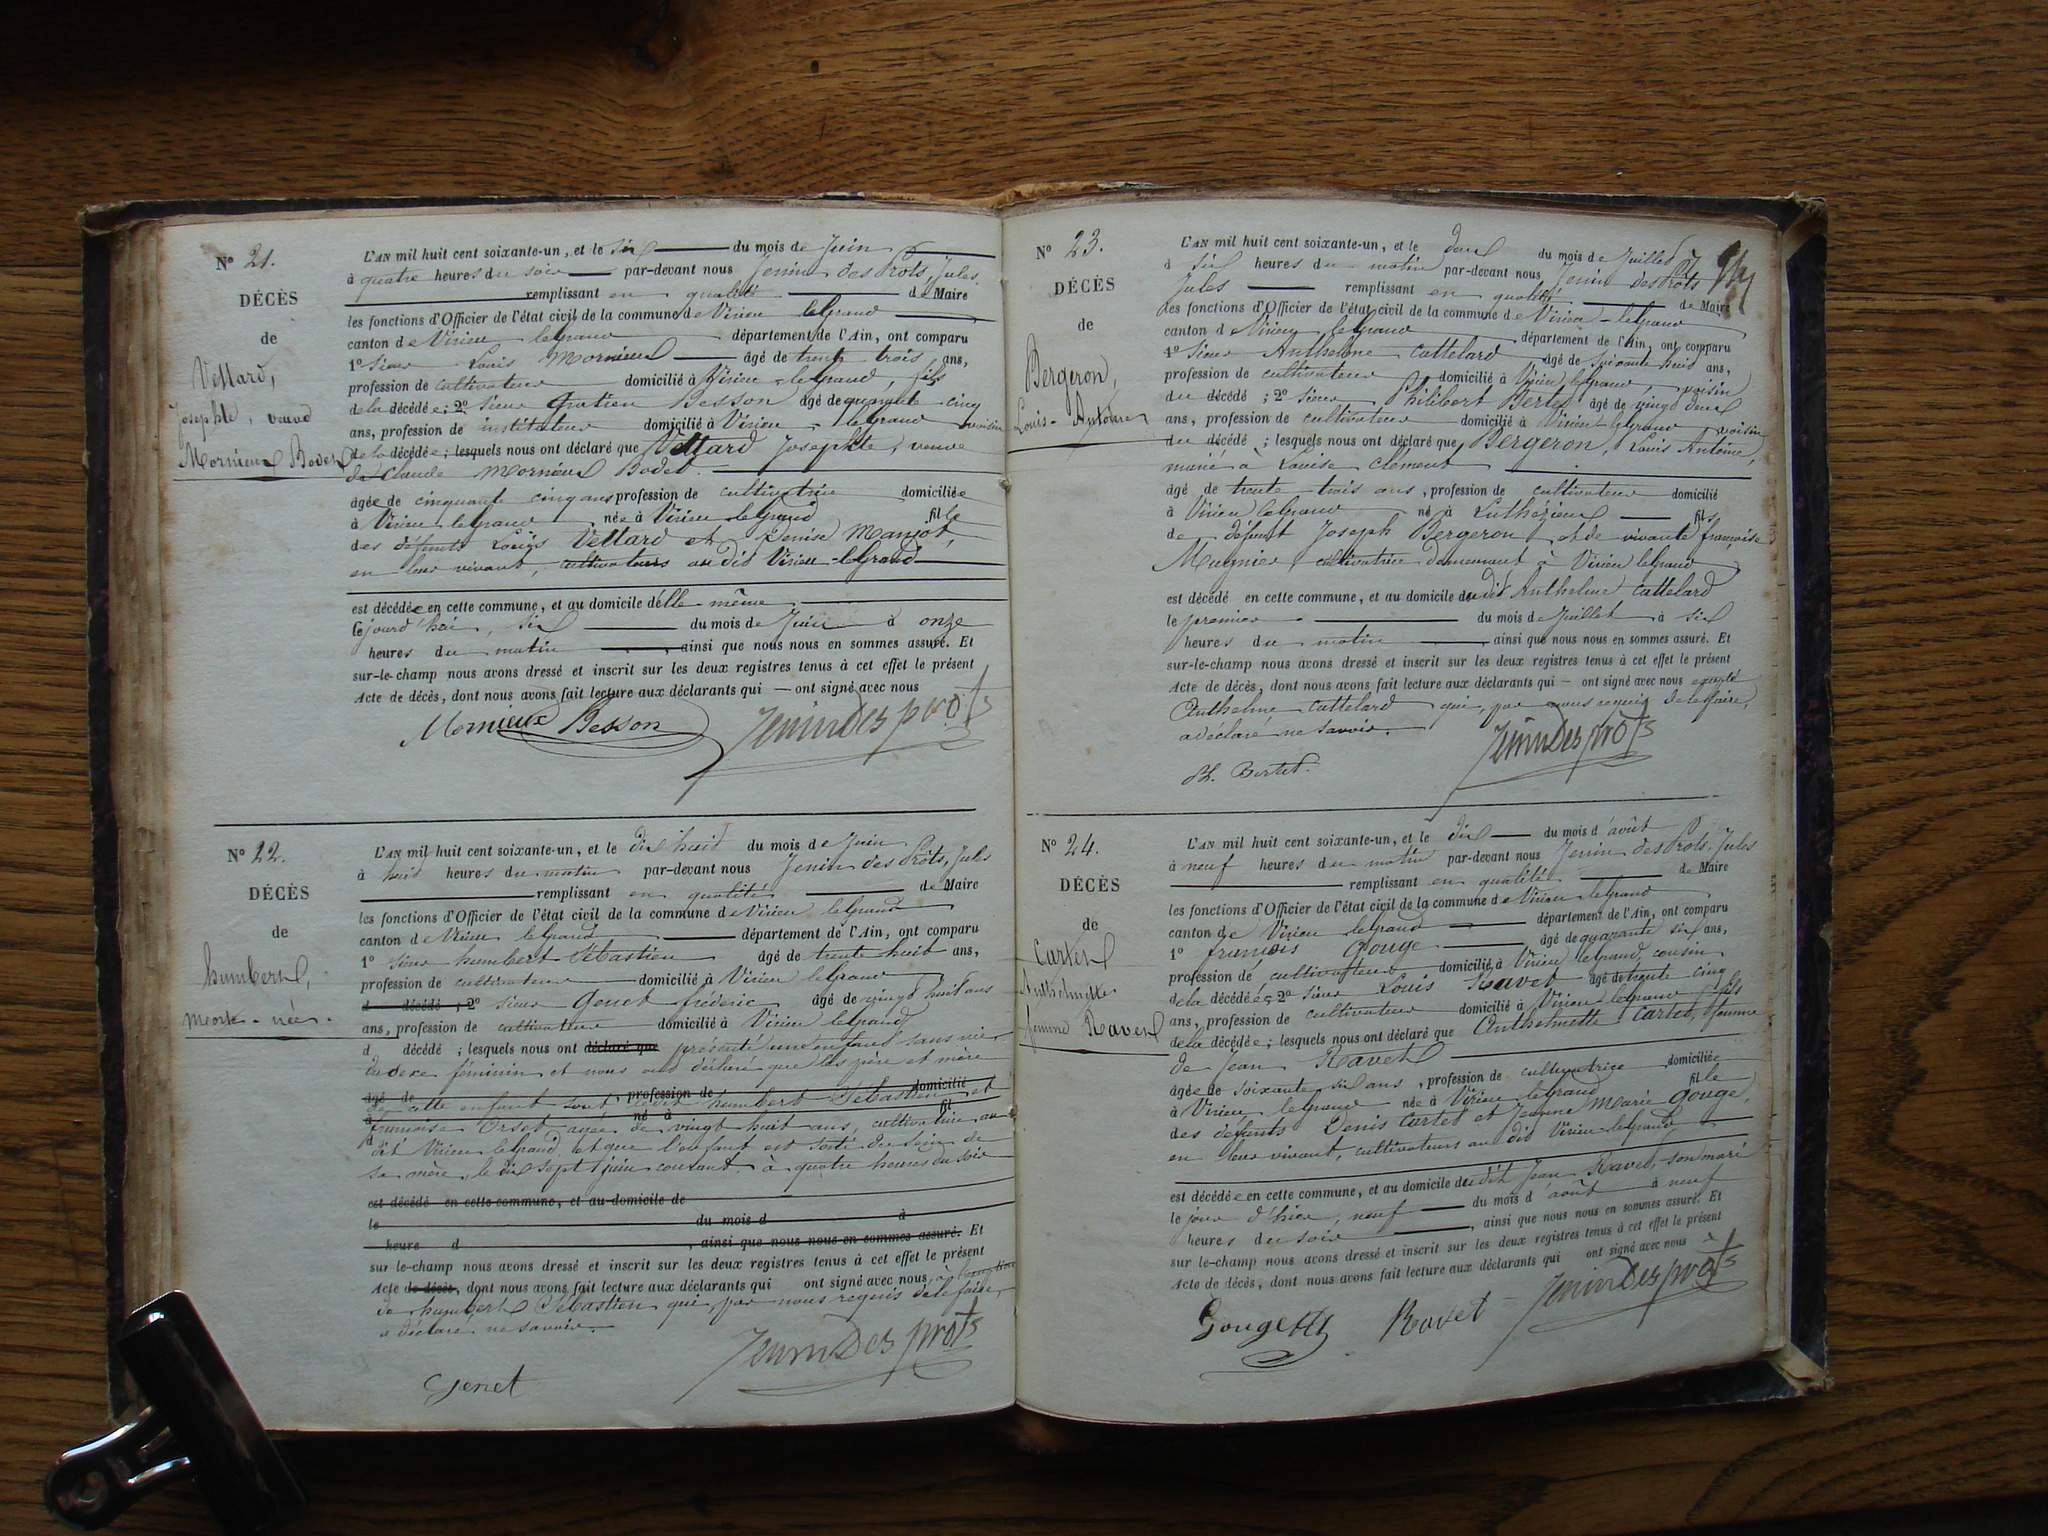 N° 21.
DÉCÈS
de
Vettard,
Josephte, veuve
Mornieux Bodet
L'AN mil huit cent soixante-un, et le six du mois de Juin
à quatre heures du soir par-devant nous Jenin des Prots, Jules
remplissant en qualité de Maire
les fonctions d'Officier de l'état civil de la commune de Virieu legrand
canton de Virieu legrand département de l'Ain, ont comparu
1° sieur Louis Mornieux âgé de trente trois ans,
profession de cultivateur domicilié à Virieu-legrand, fils
de la décédée; 2° sieur Gratien Besson âgé de quarante cinq
ans, profession de instituteur domicilié à Virieu-legrand voisin
de la décédée; lesquels nous ont déclaré que Vettard Josephte, veuve
de Claude Mornieux Bodet
âgée de cinquante cinq ans profession de cultivatrice domiciliée
à Virieu-legrand née à Virieu legrand fille
des défunts Louis Vettard et Denise Manjot,
en leur vivant, cultivateurs au dit Virieu-legrand
est décédée en cette commune, et au domicile d'elle-même
cejourd'hui, six du mois de Juin à onze
heures du matin, ainsi que nous nous en sommes assuré. Et
sur-le-champ nous avons dressé et inscrit sur les deux registres tenus à cet effet le présent
Acte de décès, dont nous avons fait lecture aux déclarants qui — ont signé avec nous
Mornieux Besson JeninDesprots
N° 22.
DÉCÈS
de
humbert,
mort-née.
L'AN mil huit cent soixante-un, et le dix huit du mois de Juin
à huit heures du matin par-devant nous Jenin des Prots, Jules
remplissant en qualité de Maire
les fonctions d'Officier de l'état civil de la commune de Virieu legrand
canton de Virieu legrand département de l'Ain, ont comparu
1° sieur humbert Sébastien âgé de trente huit ans,
profession de cultivateur domicilié à Virieu legrand
d décédé; 2° sieur Genet frédéric âgé de vingt huit ans
ans, profession de cultivateur domicilié à Virieu legrand
d décédé; lesquels nous ont déclaré que présenté un enfant sans vie
du sexe féminin et nous ont déclaré que les père et mère
âgé de profession de domicilié
de cette enfant sont ledit humbert Sébastien et
à né à fil
françoise Orset agée de vingt huit ans, cultivatrice au
d
dit Virieu legrand, et que l'enfant est sorti du sein de
sa mère, le dix sept juin courant à quatre heures du soir
est décédé en cette commune, et au domicile de
le du mois d à
heure d , ainsi que nous nous en sommes assuré. Et
sur-le-champ nous avons dressé et inscrit sur les deux registres tenus à cet effet le présent
Acte de décès, dont nous avons fait lecture aux déclarants qui ont signé avec nous, à l'exception
de humbert Sébastien qui, par nous requis de le faire,
a déclaré ne savoir.
Genet JeninDesprots
N° 23.
DÉCÈS
de
Bergeron,
Louis-Antoine
L'AN mil huit cent soixante-un, et le deux du mois de Juillet
à six heures du matin par-devant nous Jenin des Prots
Jules remplissant en qualité de Maire
les fonctions d'Officier de l'état civil de la commune de Virieu-legrand
canton de Virieu legrand département de l'Ain, ont comparu
1° sieur Anthelme Cattelard âgé de soixante huit ans,
profession de cultivateur domicilié à Virieu legrand, voisin
du décédé; 2° sieur Philibert Bertet âgé de vingt deux
ans, profession de cultivateur domicilié à Virieu legrand voisin
du décédé; lesquels nous ont déclaré que Bergeron, Louis Antoine,
marié à Louise Clément
âgé de trente trois ans, profession de cultivateur domicilié
à Virieu legrand né à Luthézieu fils
de défunt Joseph Bergeron et de vivante françoise
Mugnier, cultivatrice demeurant à Virieu legrand
est décédé en cette commune, et au domicile du dit Anthelme Cattelard
le premier du mois de Juillet à six
heures du matin, ainsi que nous nous en sommes assuré. Et
sur-le-champ nous avons dressé et inscrit sur les deux registres tenus à cet effet le présent
Acte de décès, dont nous avons fait lecture aux déclarants qui — ont signé avec nous excepté
Anthelme Cattelard qui, par nous requis de le faire,
a déclaré ne savoir.
Ph. Bertet. JeninDesprots
N° 24.
DÉCÈS
de
Cartet
Anthelmette
femme Ravet
L'AN mil huit cent soixante-un, et le dix du mois d'août
à neuf heures du matin par-devant nous Jenin des Prots, Jules
remplissant en qualité de Maire
les fonctions d'Officier de l'état civil de la commune de Virieu legrand
canton de Virieu legrand département de l'Ain, ont comparu
1° françois Gouge âgé de quarante six ans,
profession de cultivateur domicilié à Virieu legrand, cousin
de la décédée; 2° sieur Louis Ravet âgé de trente cinq
ans, profession de cultivateur domicilié à Virieu legrand fils
de la décédée; lesquels nous ont déclaré que Anthelmette Cartet, femme
de Jean Ravet
âgée de soixante six ans, profession de cultivatrice domiciliée
à Virieu legrand née à Virieu legrand fille
des défunts Denis Cartet et Jeanne Marie Gouge,
en leur vivant, cultivateurs au dit Virieu legrand
est décédée en cette commune, et au domicile du dit Jean Ravet, son mari
le jour d'hier, neuf du mois d'août à neuf
heures du soir, ainsi que nous nous en sommes assuré. Et
sur-le-champ nous avons dressé et inscrit sur les deux registres tenus à cet effet le présent
Acte de décès, dont nous avons fait lecture aux déclarants qui ont signé avec nous
Gouge Ravet JeninDesprots